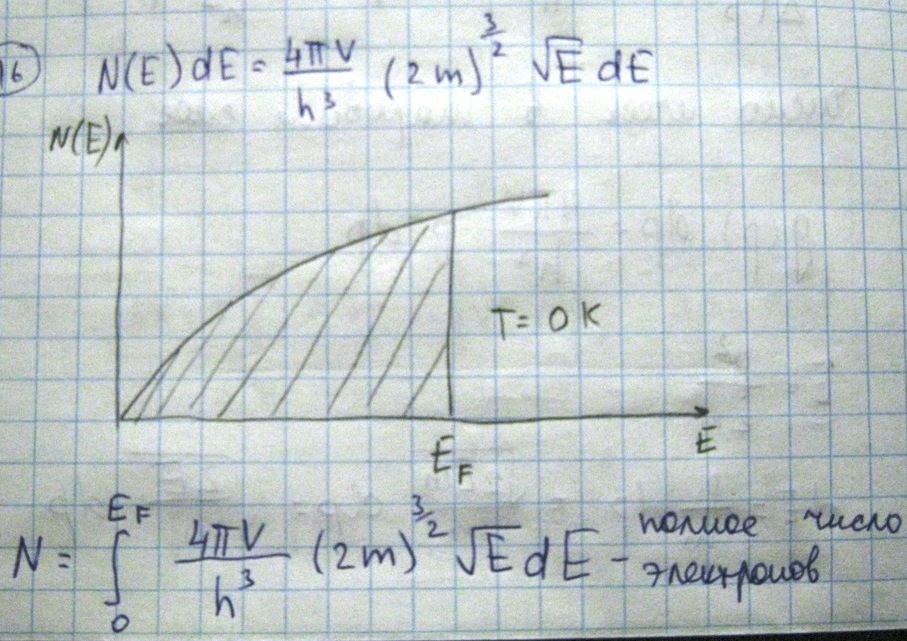 16 N(E)dE = 4πV/h³ (2m)^3/2 √E dE
N(E)
T = 0 K
E
E_F
N = ∫₀^{E_F} 4πV/h³ (2m)^3/2 √E dE - полное число
электронов